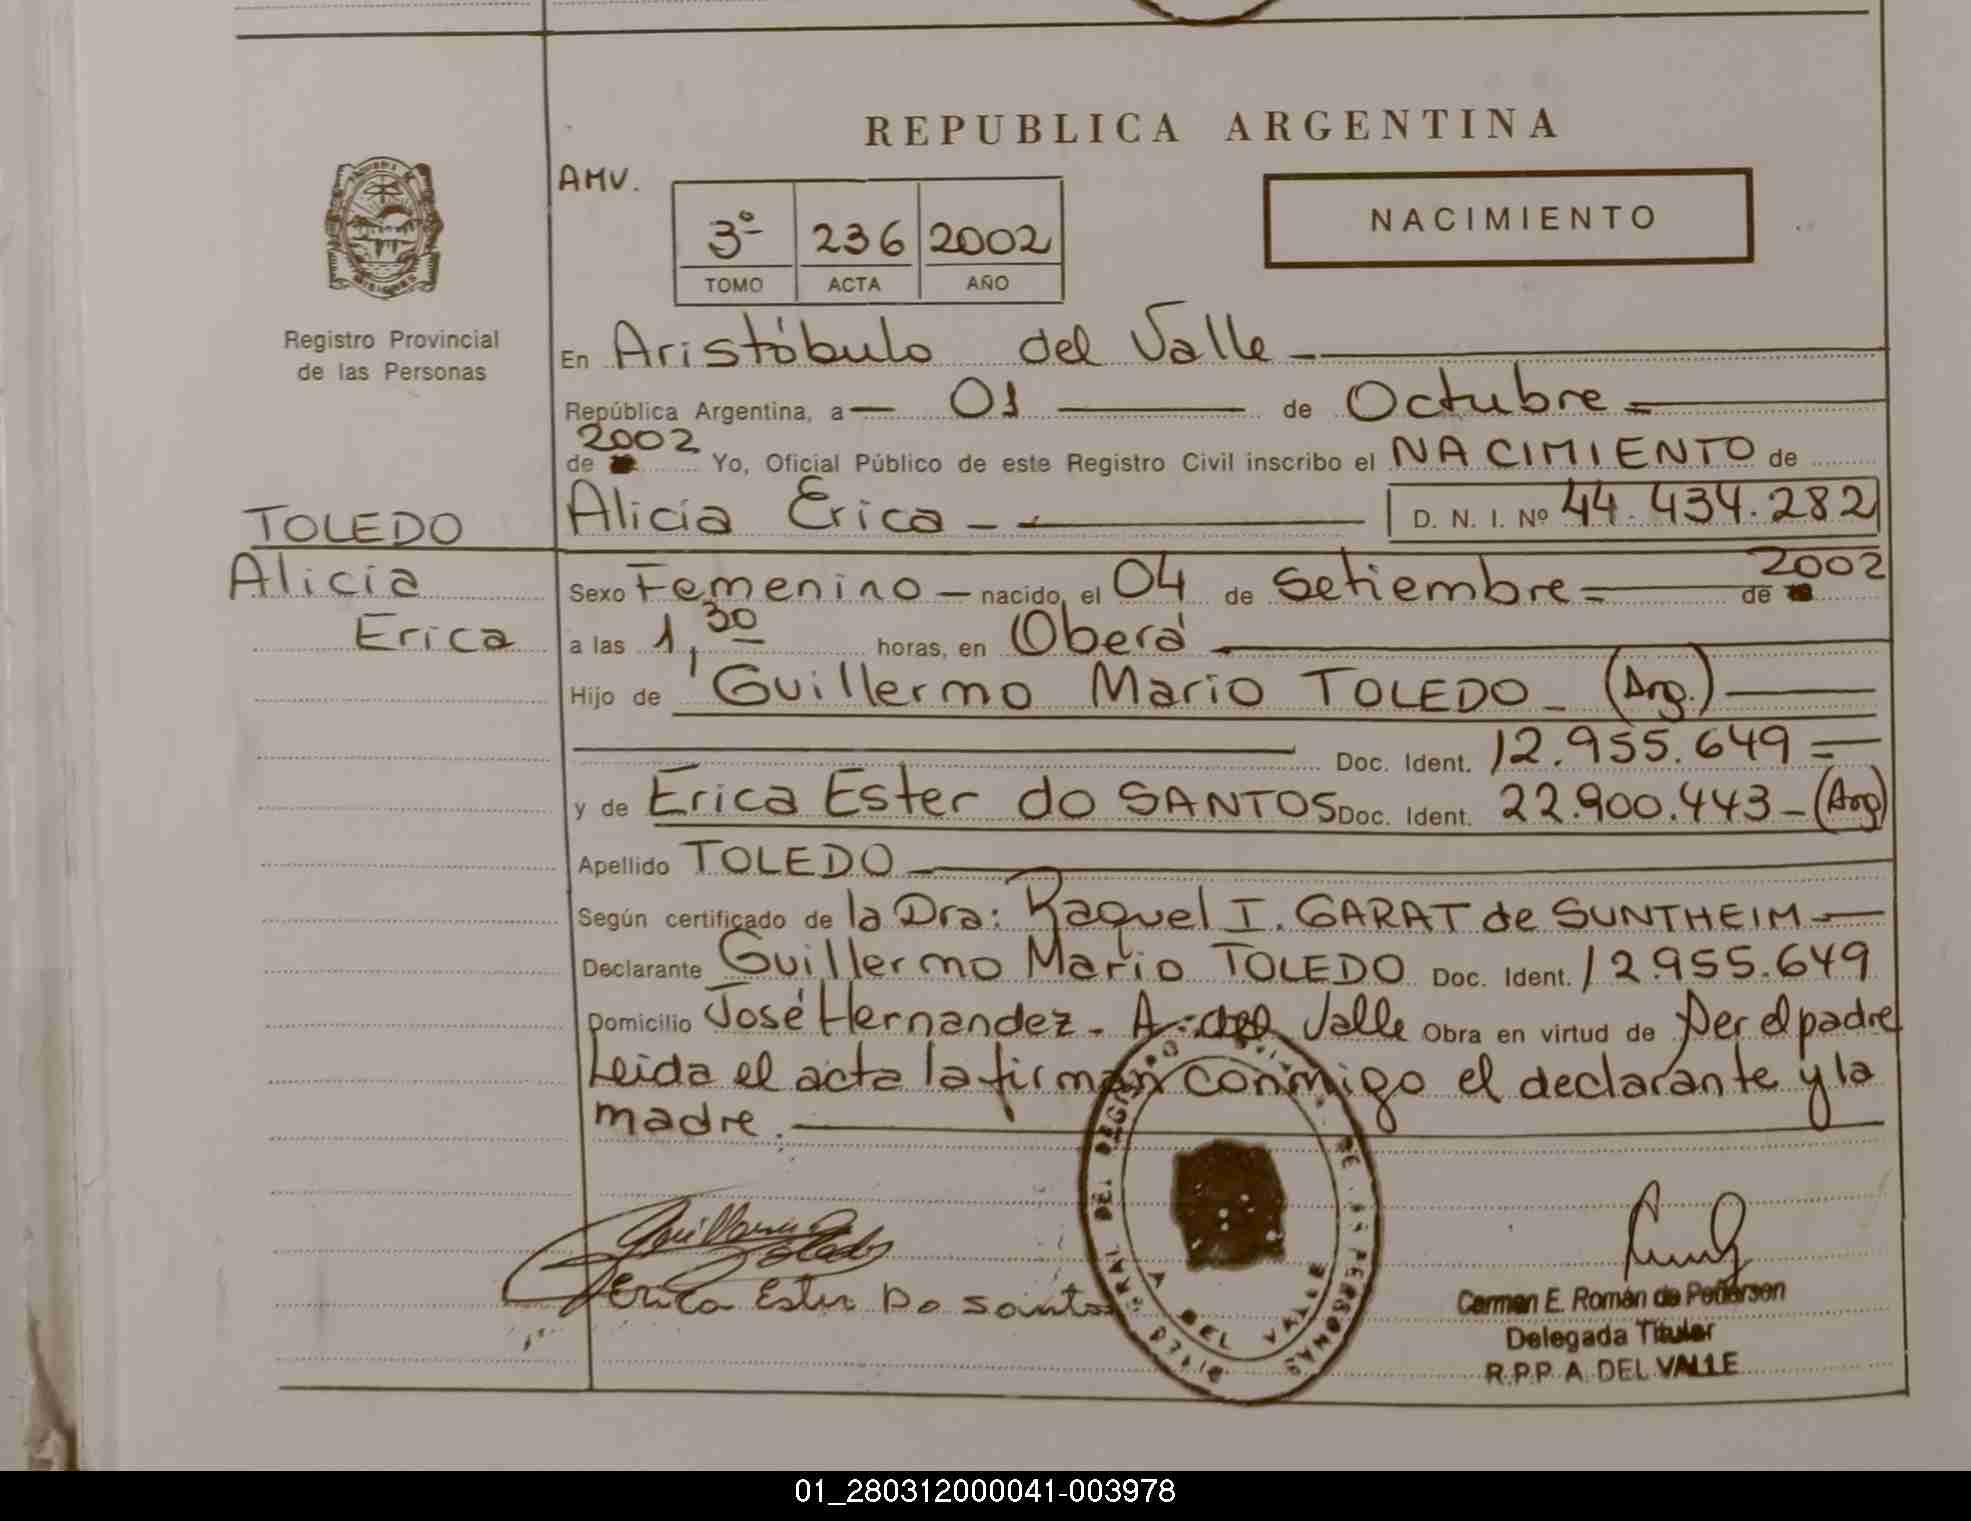 REPUBLICA ARGENTINA
AMV.
3º 236 2002
TOMO ACTA AÑO
NACIMIENTO
Registro Provincial
de las Personas
En Aristóbulo del Valle
República Argentina, a 01 de Octubre
2002
de Yo, Oficial Público de este Registro Civil inscribo el NACIMIENTO de
Alicia Erica D. N. I. Nº 44.434.282
TOLEDO
Alicia
Erica
Sexo Femenino nacido el 04 de Setiembre de 2002
a las 1,30 horas, en Oberá
Hijo de Guillermo Mario TOLEDO (Arg.)
Doc. Ident. 12.955.649
y de Erica Ester do SANTOS Doc. Ident. 22.900.443 (Arg)
Apellido TOLEDO
Según certificado de la Dra: Raquel I. GARAT de SUNTHEIM
Declarante Guillermo Mario TOLEDO Doc. Ident. 12.955.649
Domicilio José Hernandez. A. del Valle Obra en virtud de Ser el padre
Leida el acta la firman conmigo el declarante y la
madre.
Guillermo Toledo
Erica Ester Do santos
A DEL VALLE
Carmen E. Román de Pedersen
Delegada Titular
R.P.P. A. DEL VALLE
01_280312000041-003978